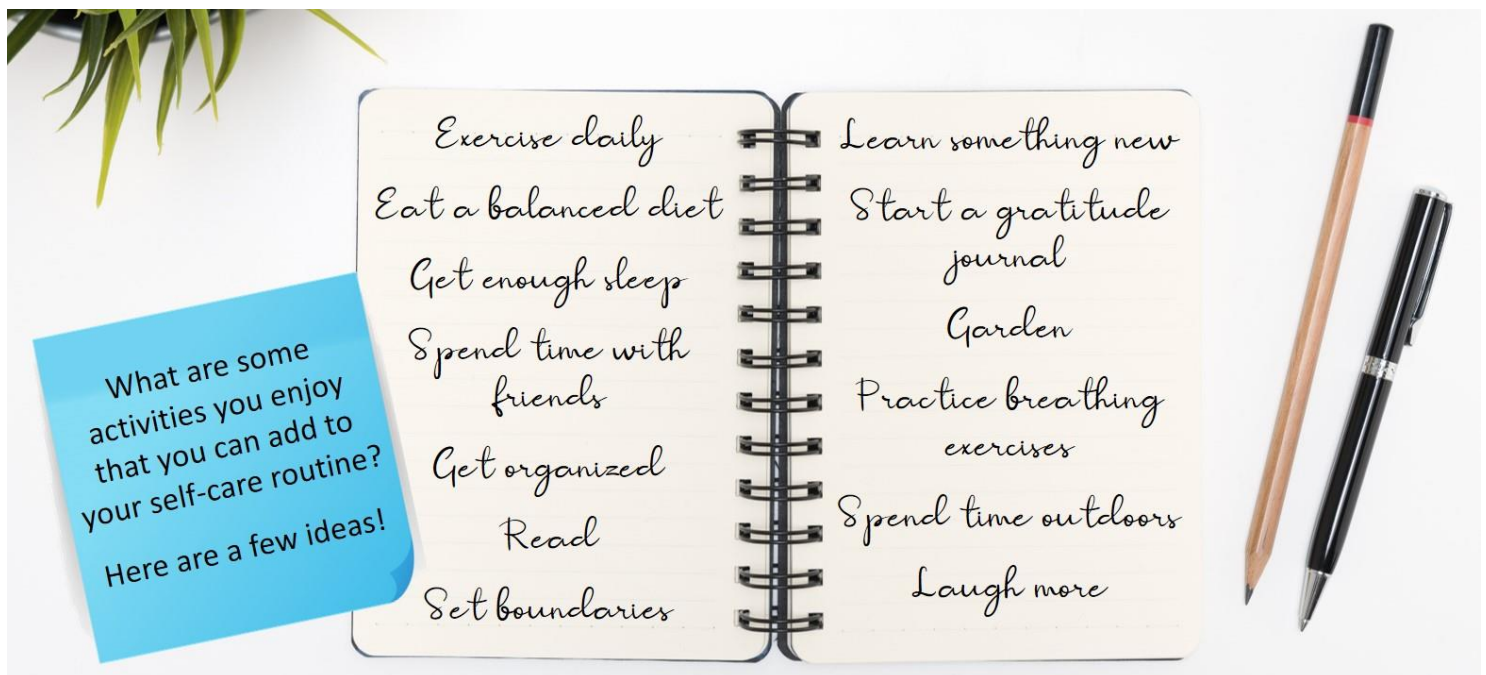 What are some
activities you enjoy
that you can add to
your self-care routine?
Here are a few ideas!
Exercise daily
Eat a balanced diet
Get enough sleep
Spend time with
friends
Get organized
Read
Set boundaries
Learn something new
Start a gratitude
journal
Garden
Practice breathing
exercises
Spend time outdoors
Laugh more